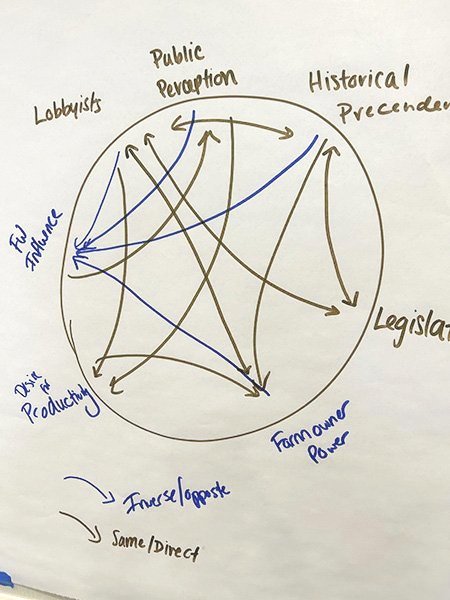 Public
Perception
Historical
Precenden
Lobbyists
FW
Influence
Legislat
Desire for
Productivity
Farmowner
Power
Inverse/opposite
Same/Direct